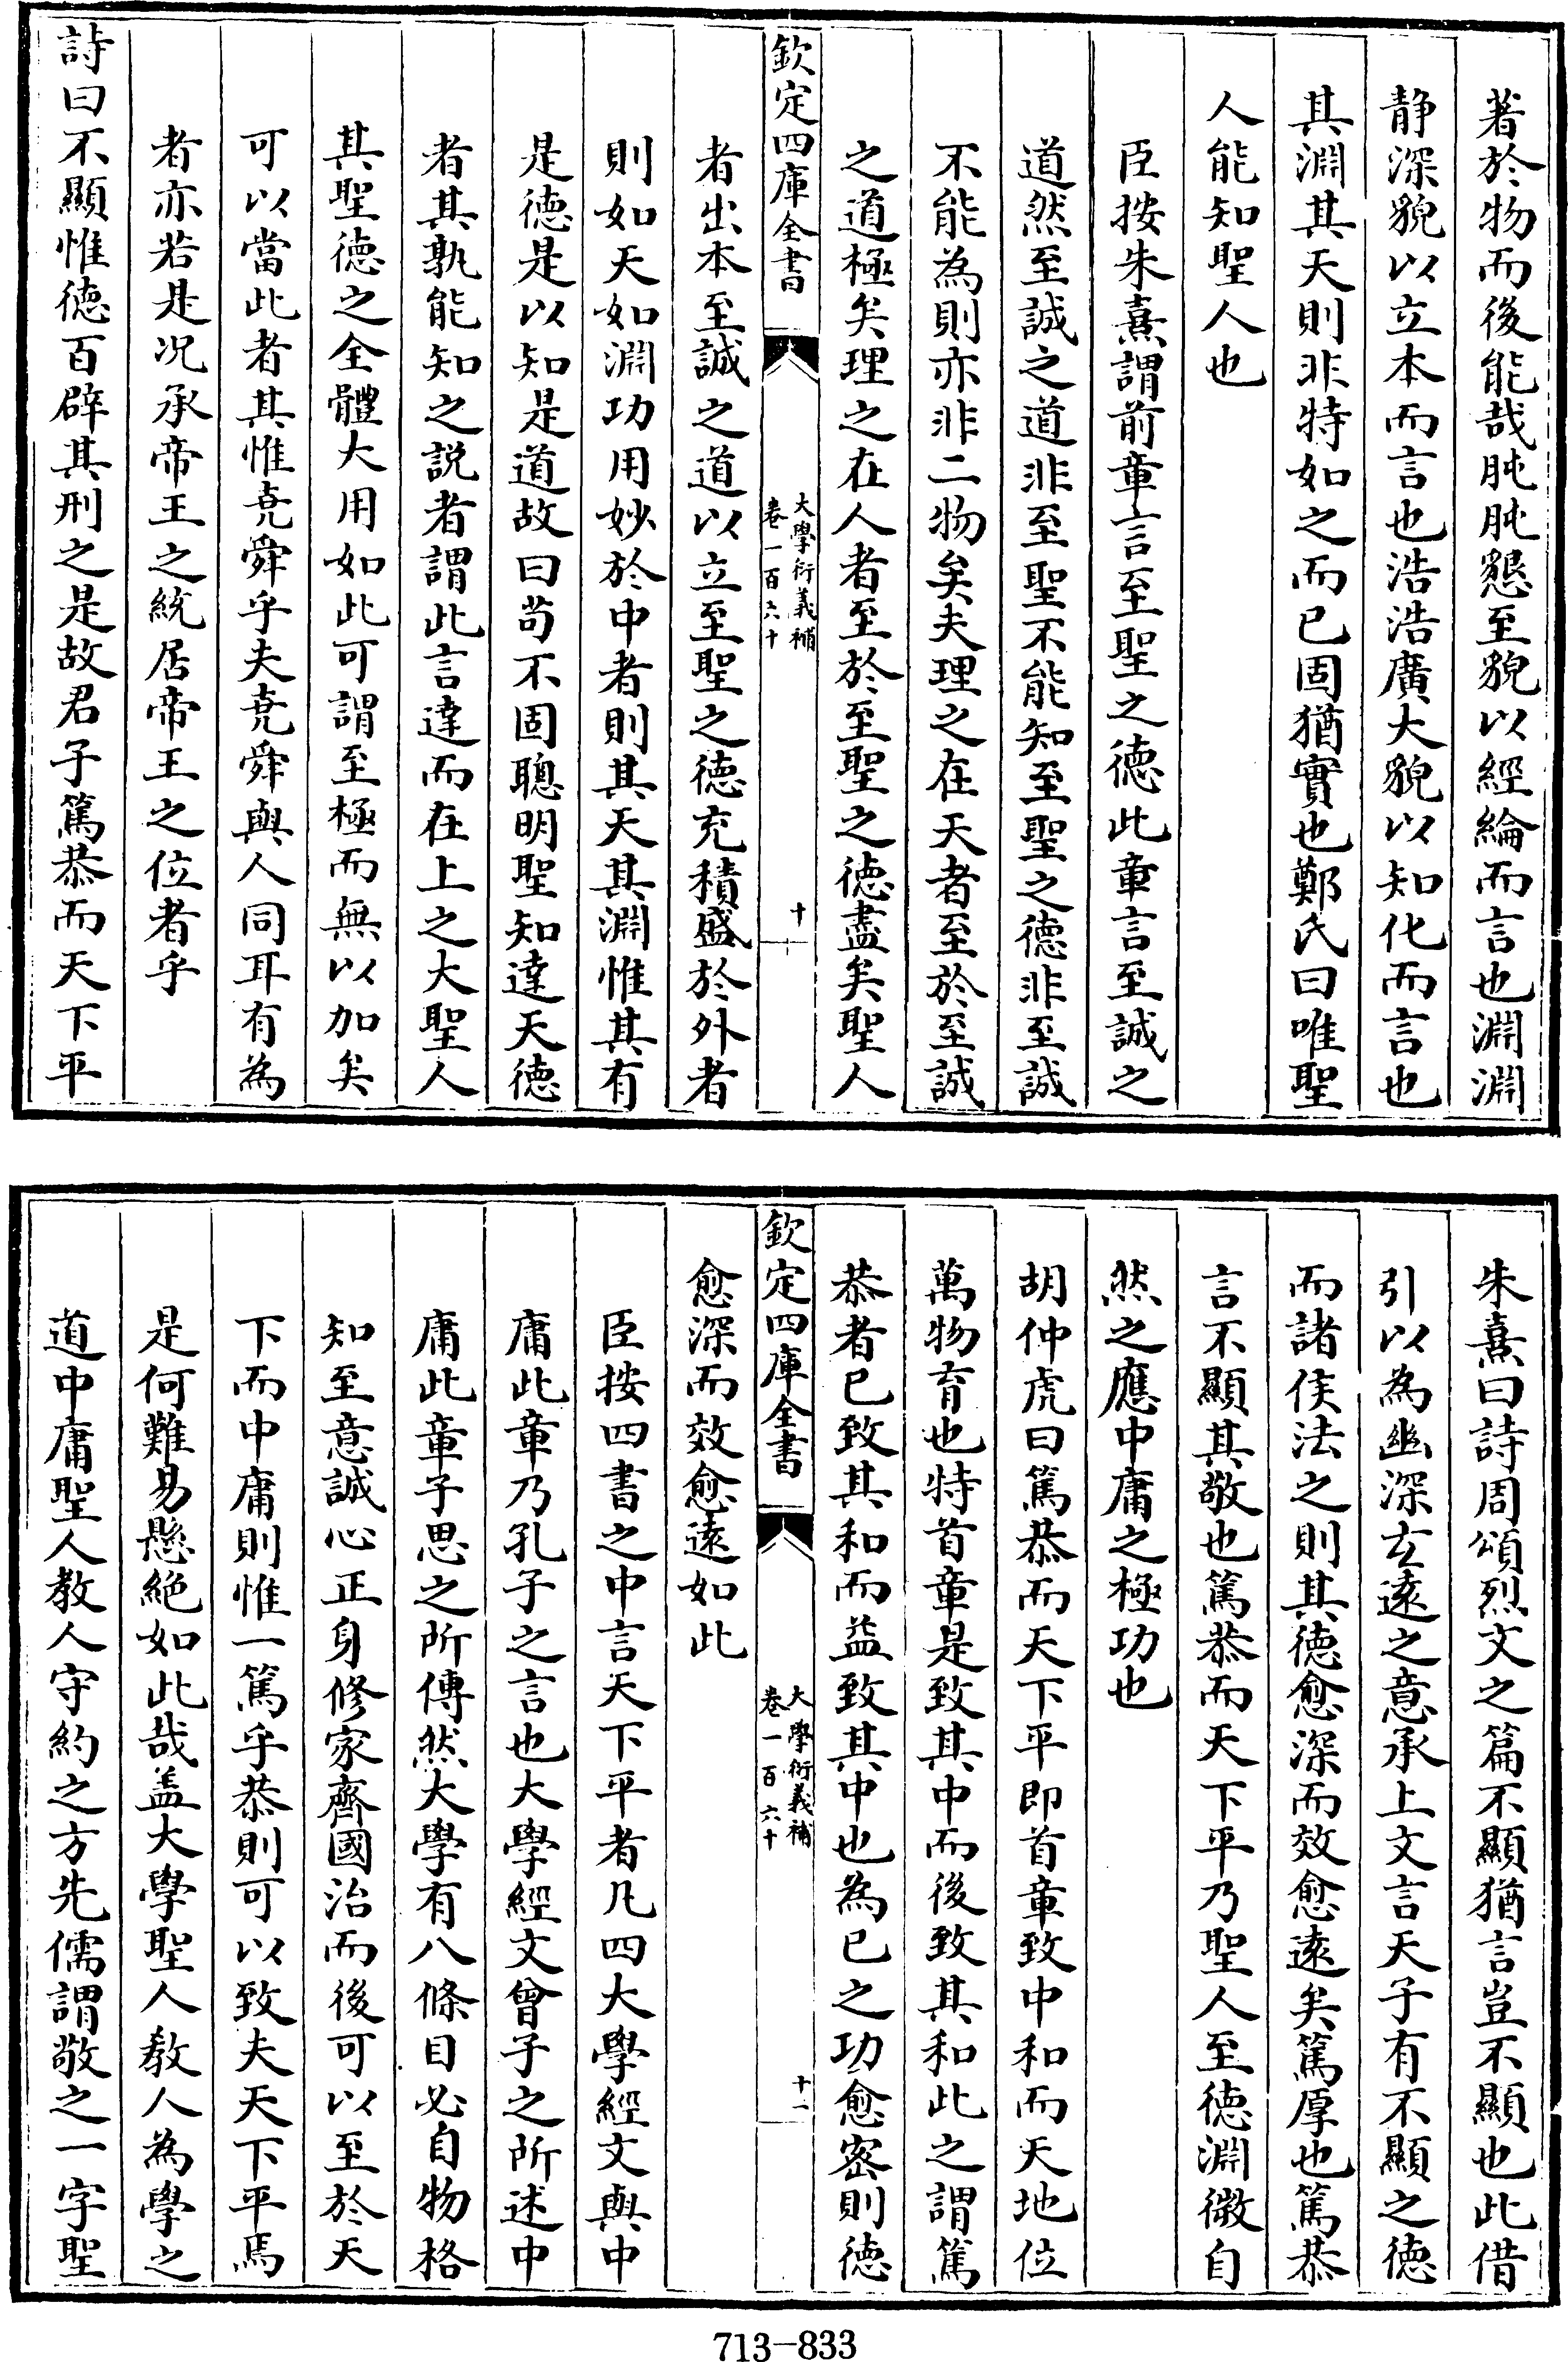 著於物而後能哉肫肫懇至貌以經綸而言也淵淵
静深貌以立本而言也浩浩廣大貌以知化而言也
其淵其天則非特如之而已固猶實也鄭氏曰唯聖
人能知聖人也
臣按朱熹謂前章言至聖之徳此章言至誠之
道然至誠之道非至聖不能知至聖之德非至誠
不能為則亦非二物矣夫理之在天者至於至誠
之道極矣理之在人者至於至聖之徳盡矣聖人
欽定四庫全書
大學衍義補
卷一百六十
十
者出本至誠之道以立至聖之徳充積盛於外者
則如天如淵功用妙於中者則其天其淵惟其有
是徳是以知是道故曰苟不固聰明聖知達天徳
者其孰能知之説者謂此言達而在上之大聖人
其聖徳之全體大用如此可謂至極而無以加矣
可以當此者其惟堯舜乎夫堯舜與人同耳有為
者亦若是况承帝王之統居帝王之位者乎
詩曰不顯惟徳百辟其刑之是故君子篤恭而天下平
朱熹曰詩周頌烈文之篇不顯猶言豈不顯也此借
引以為幽深玄遠之意承上文言天子有不顯之徳
而諸侯法之則其徳愈深而效愈遠矣篤厚也篤恭
言不顯其敬也篤恭而天下平乃聖人至徳淵微自
然之應中庸之極功也
胡仲虎曰篤恭而天下平即首章致中和而天地位
萬物育也特首章是致其中而後致其和此之謂篤
恭者已致其和而益致其中也為己之功愈密則徳
欽定四庫全書
大學衍義補
卷一百六十
十一
愈深而效愈遠如此
臣按四書之中言天下平者凡四大學經文與中
庸此章乃孔子之言也大學經文曾子之所述中
庸此章子思之所傳然大學有八條目必自物格
知至意誠心正身修家齊國治而後可以至於天
下而中庸則惟一篤乎恭則可以致夫天下平焉
是何難易懸絶如此哉盖大學聖人教人為學之
道中庸聖人教人守約之方先儒謂敬之一字聖
713-833